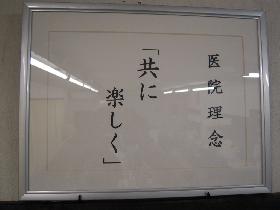 医院理念
「共に
楽しく」